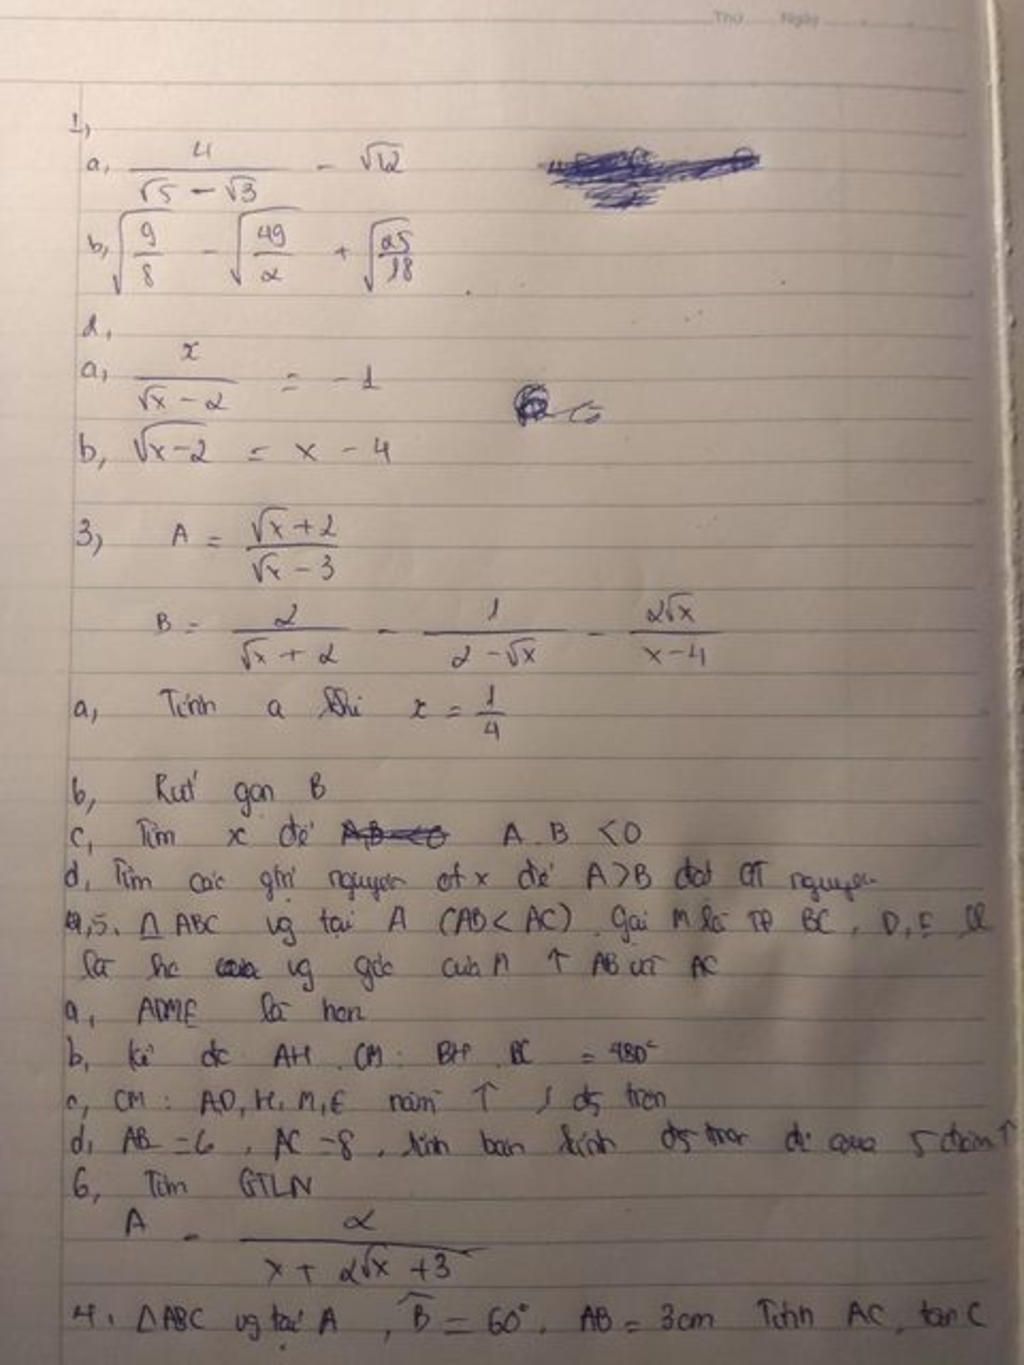 Thứ Ngày
1,
a, 4/(√5 - √3) - √12
b, √(9/8) - √(49/2) + √(25/18)
2,
a, x/(√x - 2) = -1
b, √(x-2) = x - 4
3, A = (√x + 2)/(√x - 3)
B = 2/(√x + 2) - 1/(2 - √x) - 2√x/(x - 4)
a, Tính a khi x = 1/4
b, Rút gọn B
c, Tìm x để A.B < 0
d, Tìm các gtrị nguyên of x để A>B đạt GT nguyên
5. △ABC vg tại A (AB < AC). Gọi M là TĐ BC, D, E
là hc vg góc của M ↑ AB với AC
a, ADME là hcn
b, Kẻ đc AH. CM: BH . BC =
c, CM: A,D, H, M, E nằm ↑ 1 đg tròn
d, AB = 6, AC = 8, tính bán kính đg tròn đi qua 5 điểm ↑
6, Tìm GTLN
A = 2/(x + 2√x + 3)
4. △ABC vg tại A, B̂ = 60°, AB = 3cm Tính AC, tan C